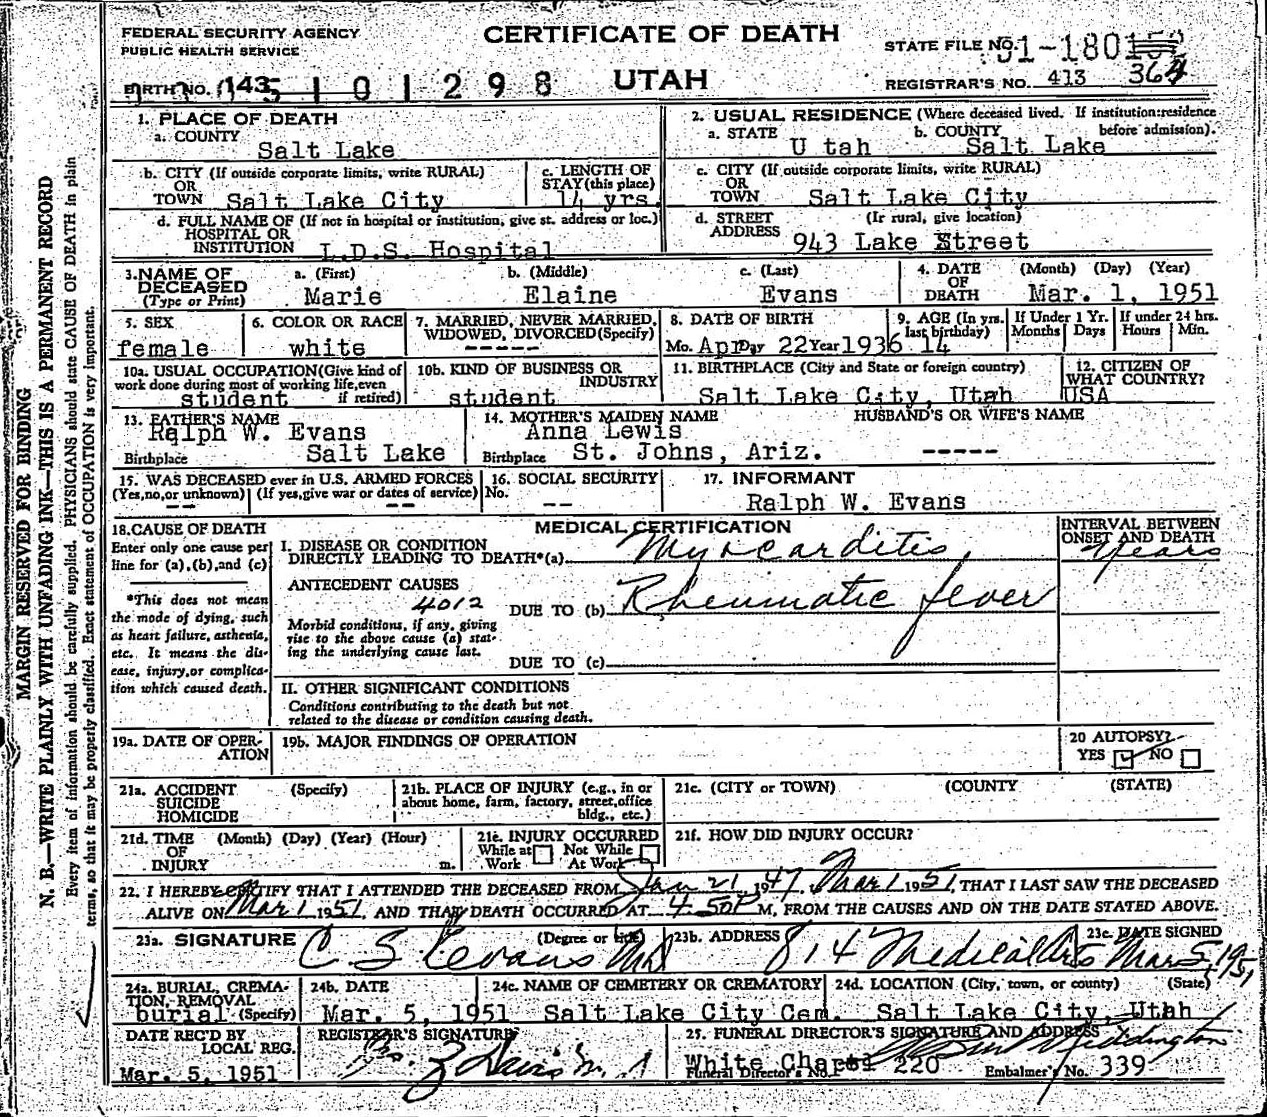 FEDERAL SECURITY AGENCY
PUBLIC HEALTH SERVICE
CERTIFICATE OF DEATH
UTAH
STATE FILE NO. 51-180
REGISTRAR'S NO. 413 364
BIRTH NO. 143 101298
1. PLACE OF DEATH
a. COUNTY
Salt Lake
2. USUAL RESIDENCE (Where deceased lived. If institution:residence
a. STATE b. COUNTY before admission).
U tah Salt Lake
b. CITY (If outside corporate limits, write RURAL)
OR
TOWN Salt Lake City
c. LENGTH OF
STAY (this place)
14 yrs.
c. CITY (If outside corporate limits, write RURAL)
OR
TOWN Salt Lake City
d. FULL NAME OF (If not in hospital or institution, give st. address or loc.)
HOSPITAL OR
INSTITUTION L.D.S. Hospital
d. STREET (If rural, give location)
ADDRESS 943 Lake Street
3. NAME OF
DECEASED
(Type or Print)
a. (First)
Marie
b. (Middle)
Elaine
c. (Last)
Evans
4. DATE (Month) (Day) (Year)
OF
DEATH Mar. 1, 1951
5. SEX
female
6. COLOR OR RACE
white
7. MARRIED, NEVER MARRIED,
WIDOWED, DIVORCED (Specify)
-----
8. DATE OF BIRTH
Mo. Apr Day 22 Year 1936
9. AGE (In yrs.
last birthday)
14
If Under 1 Yr.
Months Days
If under 24 hrs.
Hours Min.
10a. USUAL OCCUPATION (Give kind of
work done during most of working life, even
if retired)
student
10b. KIND OF BUSINESS OR
INDUSTRY
student
11. BIRTHPLACE (City and State or foreign country)
Salt Lake City, Utah
12. CITIZEN OF
WHAT COUNTRY?
USA
13. FATHER'S NAME
Ralph W. Evans
Birthplace Salt Lake
14. MOTHER'S MAIDEN NAME
Anna Lewis
Birthplace St. Johns, Ariz.
HUSBAND'S OR WIFE'S NAME
-----
15. WAS DECEASED ever in U.S. ARMED FORCES
(Yes,no,or unknown) (If yes,give war or dates of service)
-- --
16. SOCIAL SECURITY
No.
--
17. INFORMANT
Ralph W. Evans
18. CAUSE OF DEATH
Enter only one cause per
line for (a),(b),and (c)
*This does not mean
the mode of dying, such
as heart failure, asthenia,
etc. It means the dis-
ease, injury,or complica-
tion which caused death.
MEDICAL CERTIFICATION
I. DISEASE OR CONDITION
DIRECTLY LEADING TO DEATH*(a) Myocarditis,
ANTECEDENT CAUSES
4012 DUE TO (b) Rheumatic fever
Morbid conditions, if any, giving
rise to the above cause (a) stat-
ing the underlying cause last.
DUE TO (c)
II. OTHER SIGNIFICANT CONDITIONS
Conditions contributing to the death but not
related to the disease or condition causing death.
INTERVAL BETWEEN
ONSET AND DEATH
Years
19a. DATE OF OPER-
ATION
19b. MAJOR FINDINGS OF OPERATION
20 AUTOPSY?
YES NO
21a. ACCIDENT (Specify)
SUICIDE
HOMICIDE
21b. PLACE OF INJURY (e.g., in or
about home, farm, factory, street,office
bldg., etc.)
21c. (CITY or TOWN) (COUNTY) (STATE)
21d. TIME (Month) (Day) (Year) (Hour)
OF
INJURY m.
21e. INJURY OCCURRED
While at Not While
Work At Work
21f. HOW DID INJURY OCCUR?
22. I HEREBY CERTIFY THAT I ATTENDED THE DECEASED FROM Jan 21, 1947, Mar 1 1951, THAT I LAST SAW THE DECEASED
ALIVE ON Mar 1 1951, AND THAT DEATH OCCURRED AT 4 50P M, FROM THE CAUSES AND ON THE DATE STATED ABOVE.
23a. SIGNATURE (Degree or title)
C S Evans MD
23b. ADDRESS
814 Medical Arts
23c. DATE SIGNED
Mar 5, 1951
24a. BURIAL, CREMA-
TION, REMOVAL
(Specify)
burial
24b. DATE
Mar. 5, 1951
24c. NAME OF CEMETERY OR CREMATORY
Salt Lake City Cem.
24d. LOCATION (City, town, or county) (State)
Salt Lake City, Utah
DATE REC'D BY
LOCAL REG.
Mar. 5, 1951
REGISTRAR'S SIGNATURE
25. FUNERAL DIRECTOR'S SIGNATURE AND ADDRESS
White Chapel
Funeral Director's No. 220
Embalmer's No. 339
MARGIN RESERVED FOR BINDING
N. B.—WRITE PLAINLY WITH UNFADING INK—THIS IS A PERMANENT RECORD
Every item of information should be carefully supplied. PHYSICIANS should state CAUSE OF DEATH in plain
terms, so that it may be properly classified. Exact statement of OCCUPATION is very important.